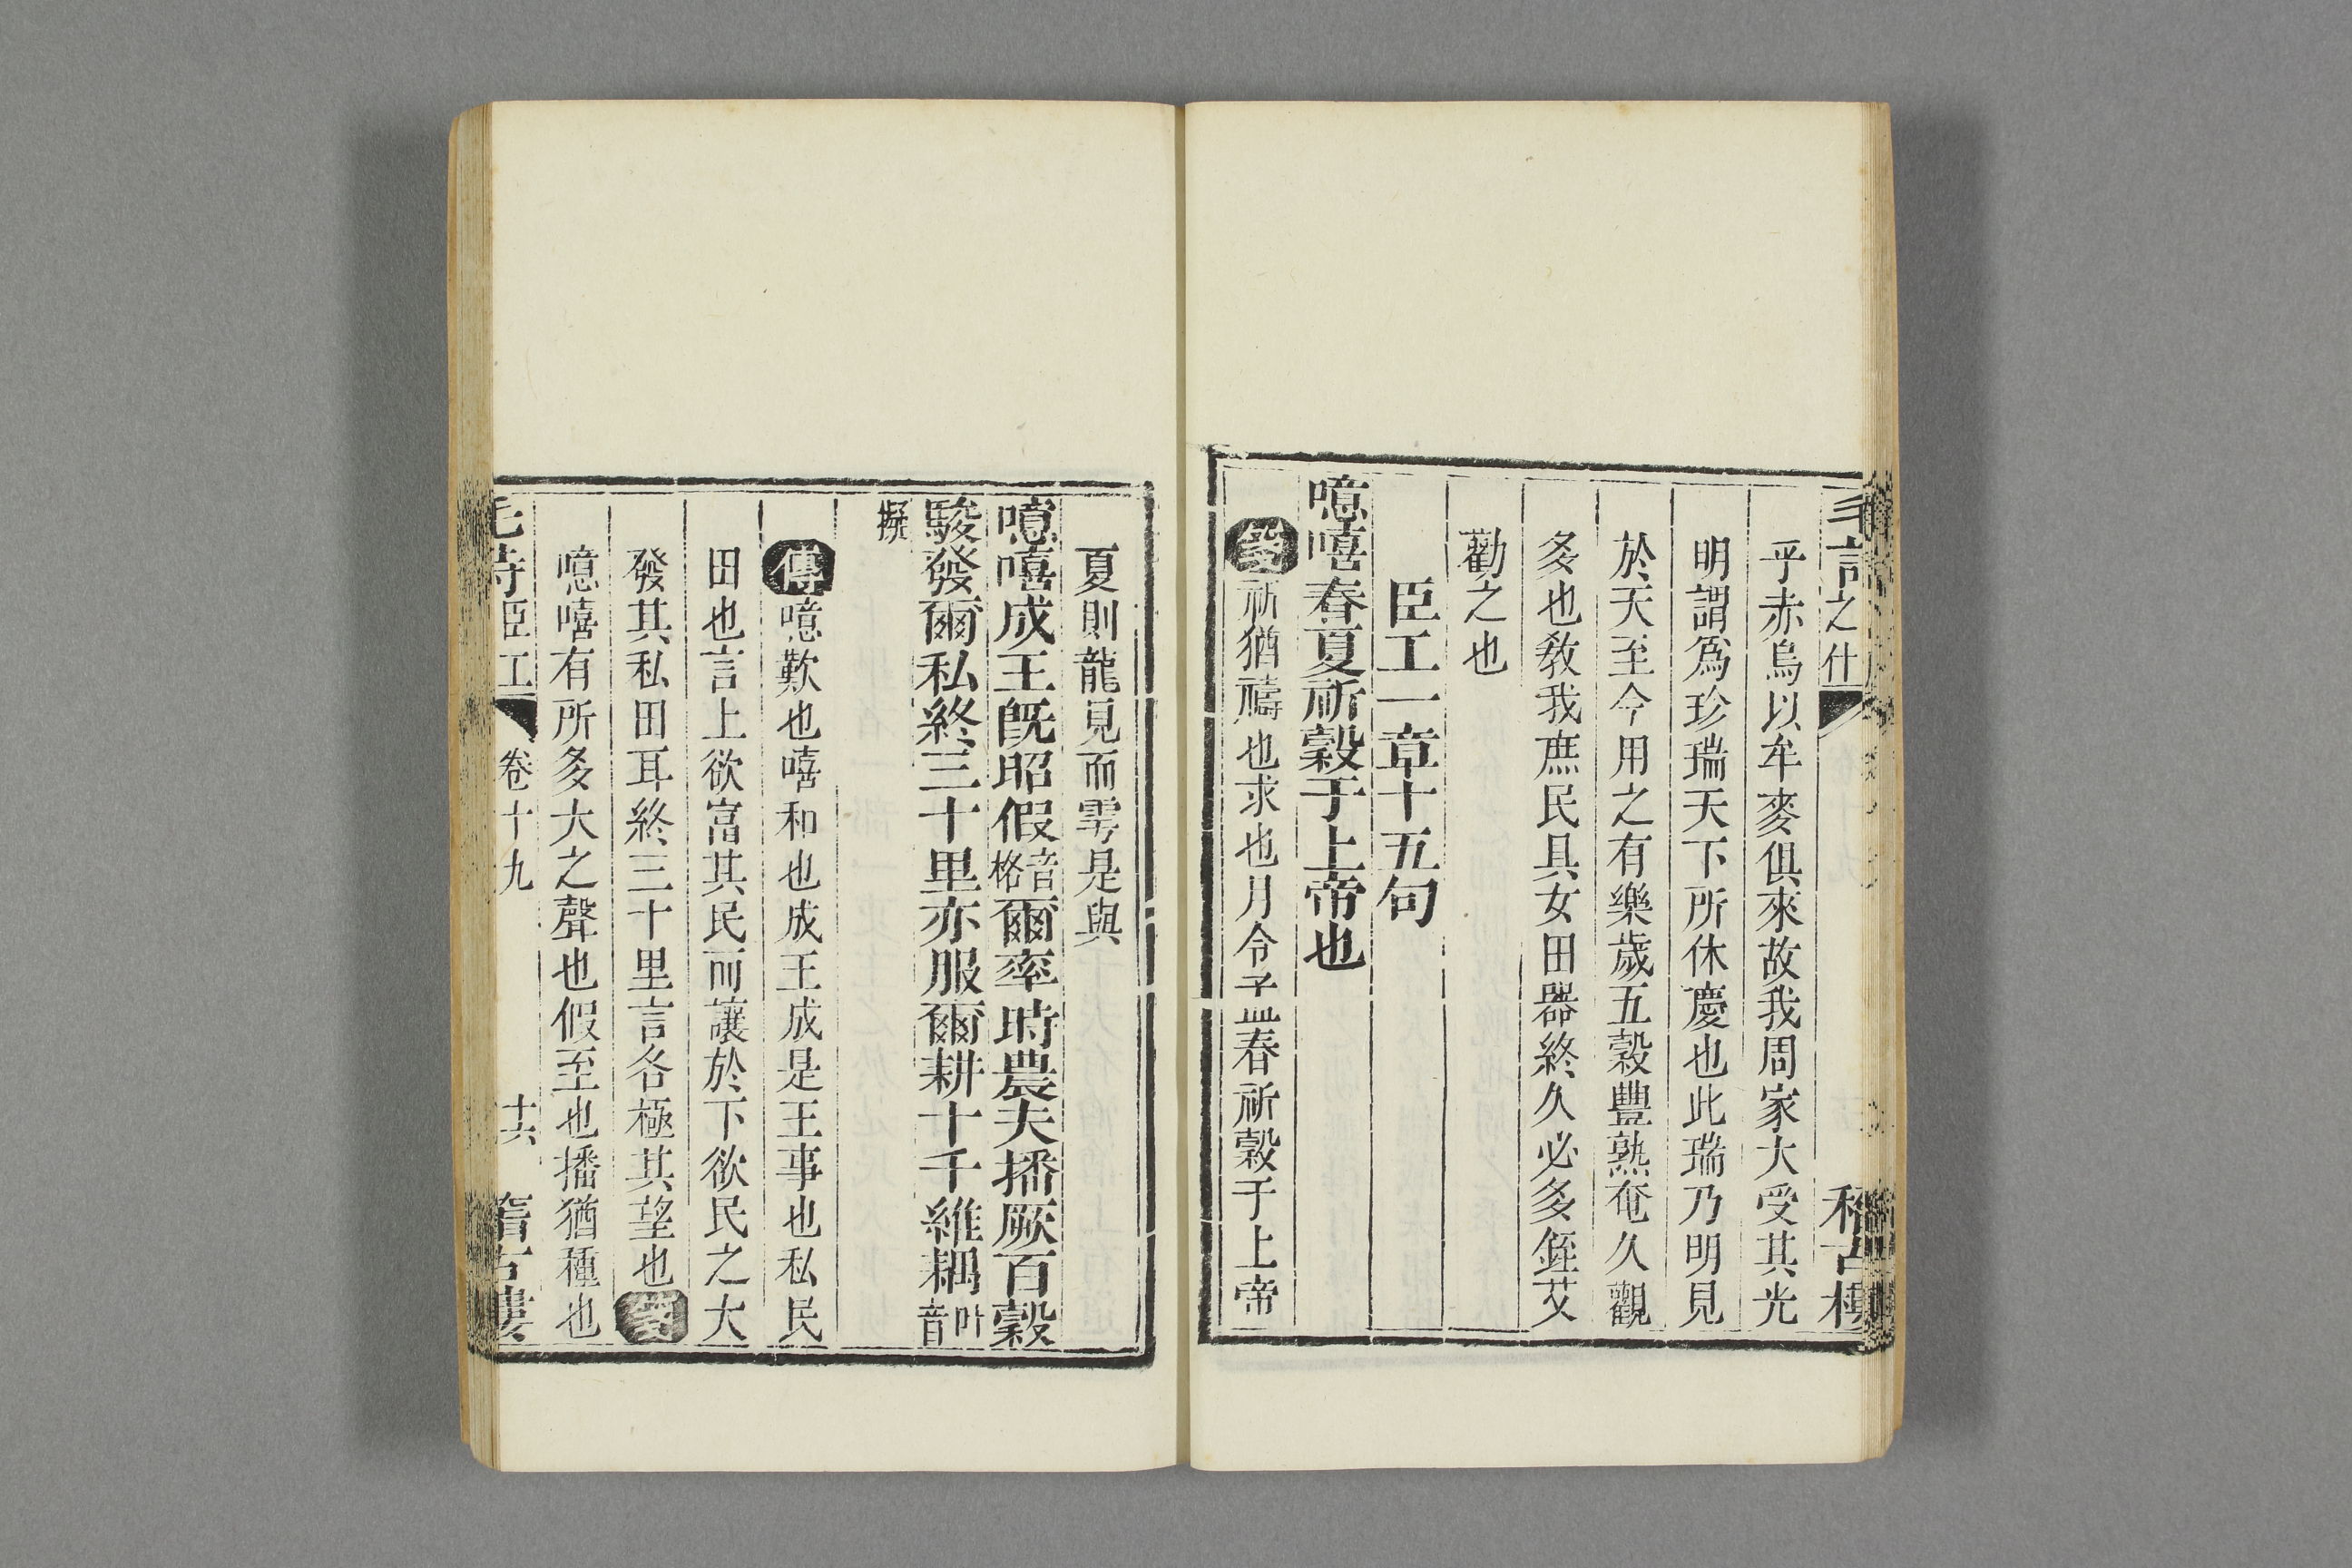 毛詩之什 稽古樓
乎赤烏以牟麥俱來故我周家大受其光
明謂爲珍瑞天下所休慶也此瑞乃明見
於天至今用之有樂歲五穀豐熟奄久觀
多也敎我庶民具女田器終久必多銍艾
勸之也
臣工一章十五句
噫嘻春夏祈穀于上帝也
箋祈猶禱也求也月令孟春祈穀于上帝
夏則龍見而雩是與
噫嘻成王旣昭假音格爾率時農夫播厥百穀
駿發爾私終三十里亦服爾耕十千維耦叶音
擬
傳噫歎也嘻和也成王成是王事也私民
田也言上欲富其民而讓於下欲民之大
發其私田耳終三十里言各極其望也箋
噫嘻有所多大之聲也假至也播猶種也
毛詩臣工 卷十九 十六 稽古樓